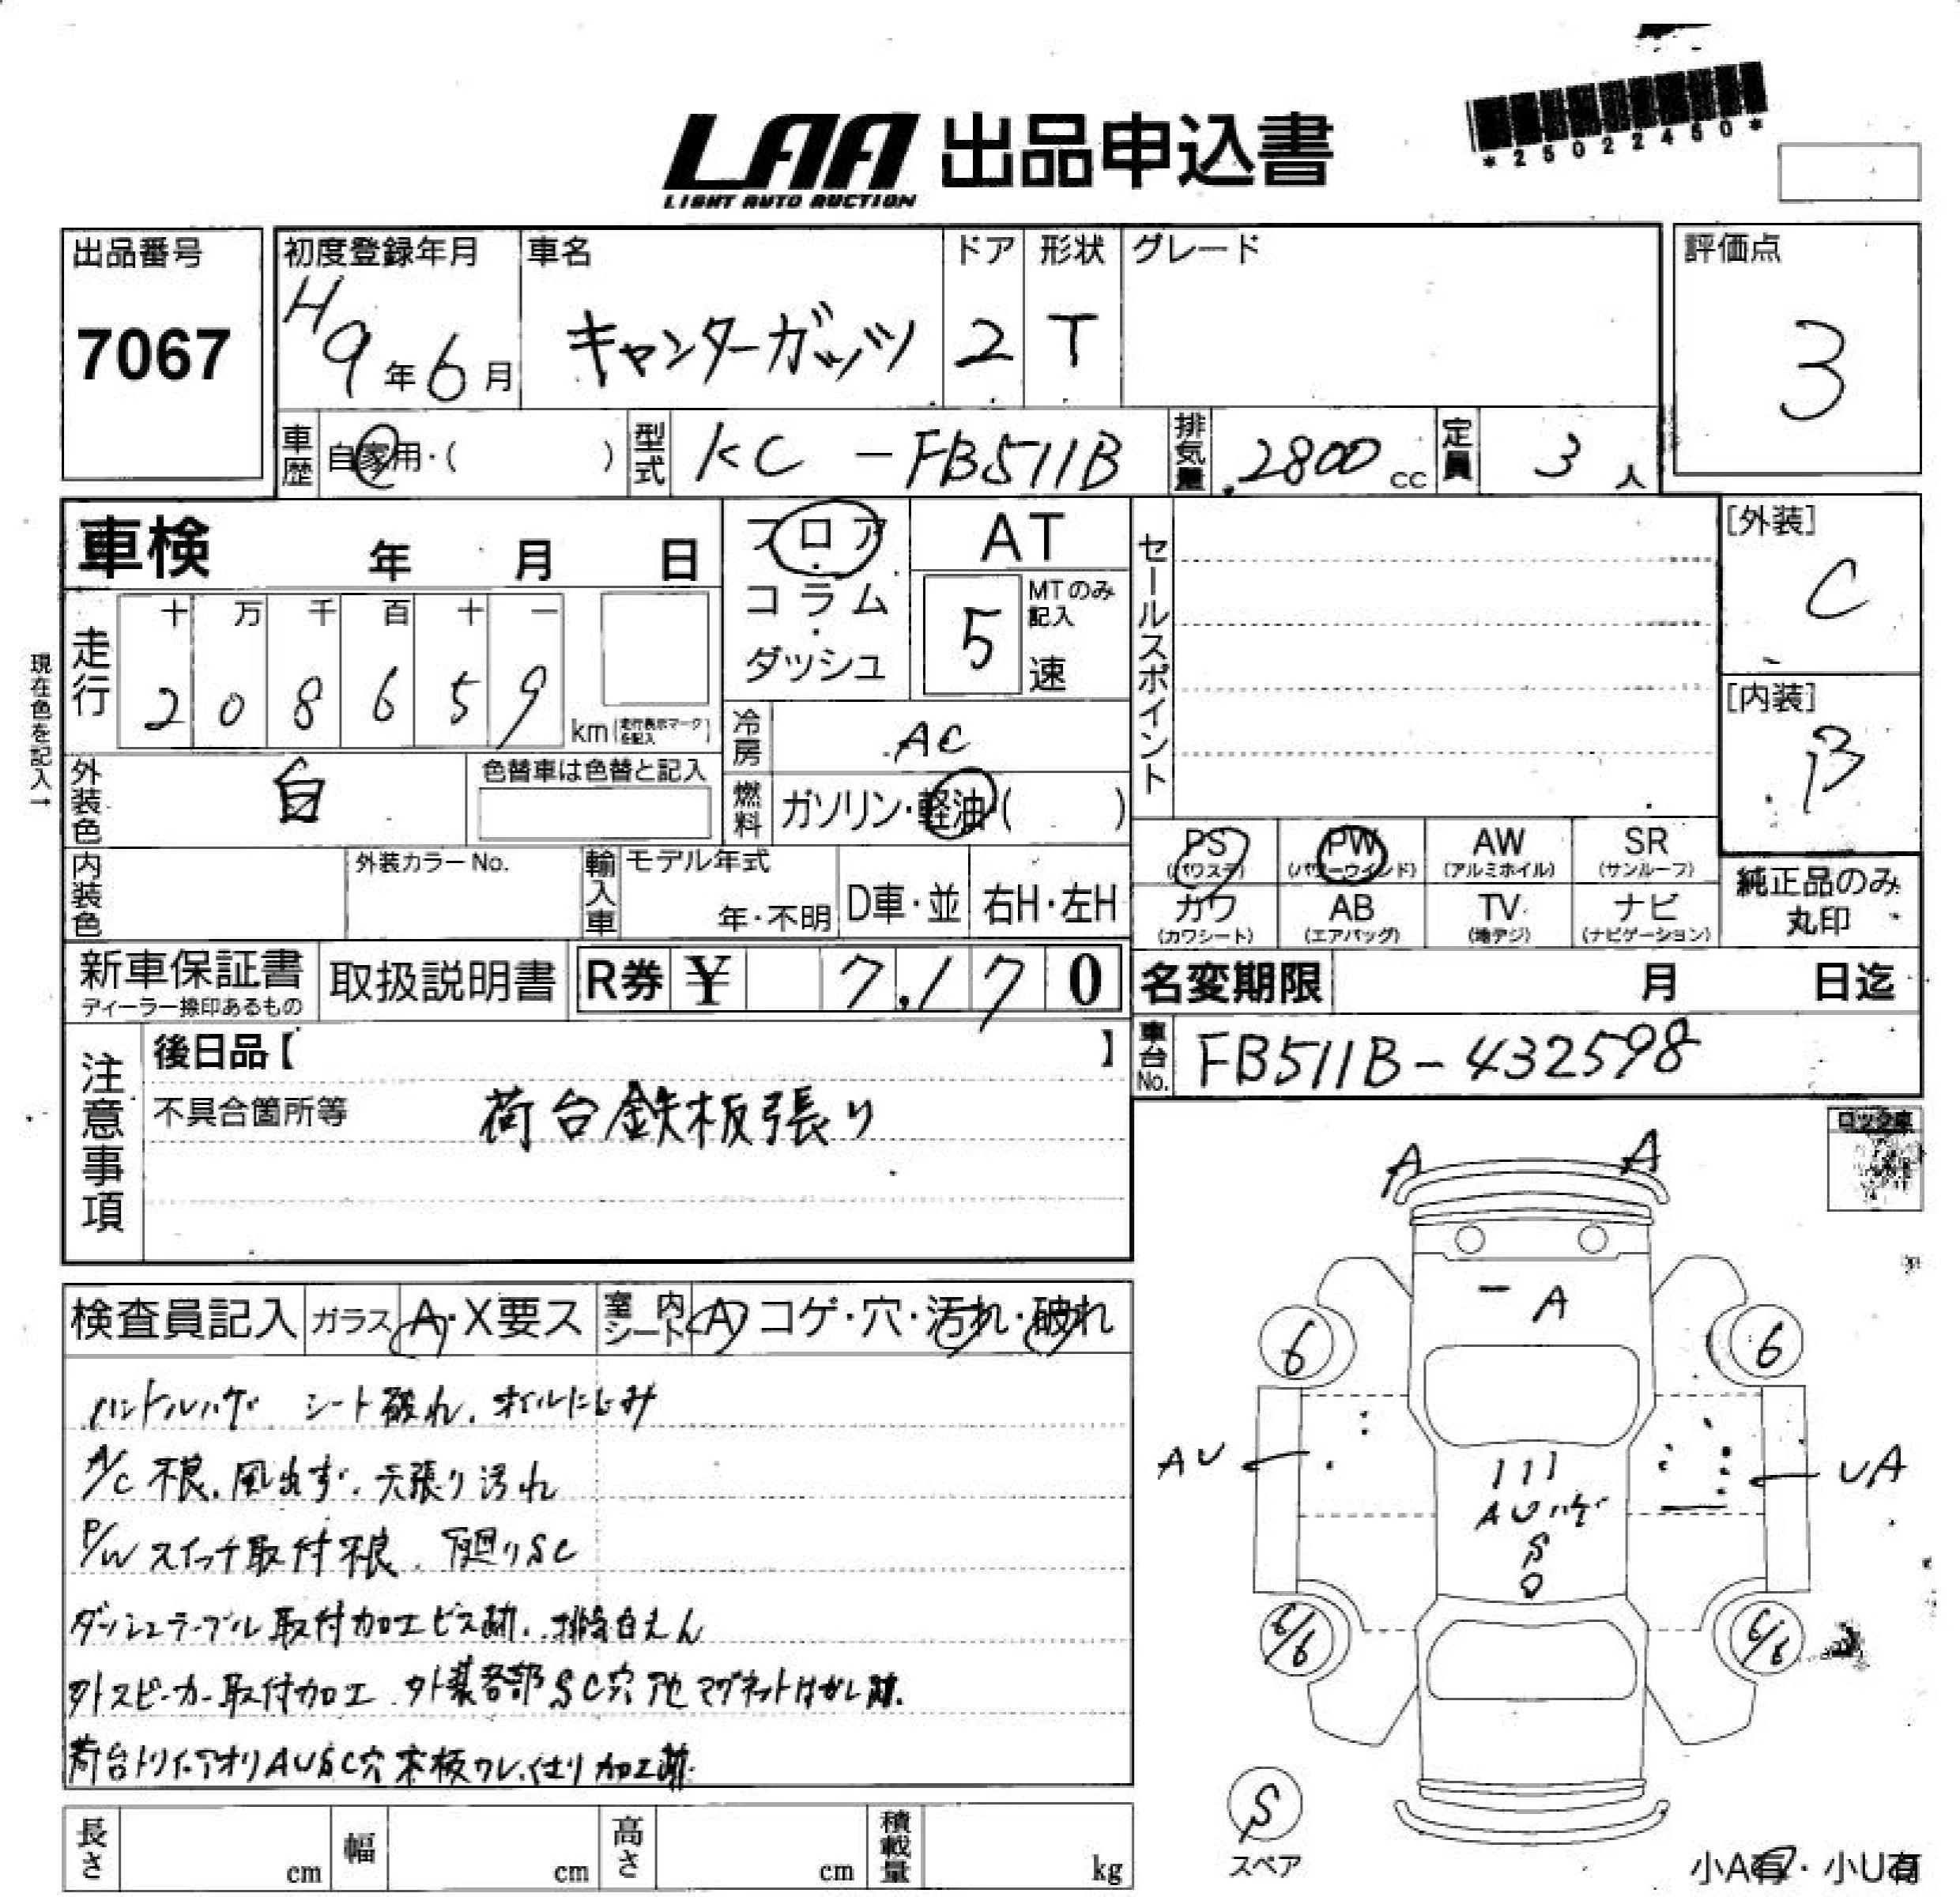 *25022450*
LAA 出品申込書
LIGHT AUTO AUCTION
出品番号
7067
初度登録年月
H9年6月
車名
キャンターガッツ
ドア
2
形状
T
グレード
評価点
3
車歴
自家用・( )
型式
KC-FB511B
排気量
2800cc
定員
3人
車検 年 月 日
フロア・コラム・ダッシュ
AT
MTのみ記入
5速
セールスポイント
[外装]
C
[内装]
B
現在色を記入→
走行
十 万 千 百 十 一
2 0 8 6 5 9
km(走行表示マークを記入)
冷房
AC
外装色
白
色替車は色替と記入
燃料
ガソリン・軽油( )
PS (パワステ)
PW (パワーウインド)
AW (アルミホイル)
SR (サンルーフ)
内装色
外装カラーNo.
輸入車
モデル年式
年・不明
D車・並
右H・左H
カワ (カワシート)
AB (エアバッグ)
TV (地デジ)
ナビ (ナビゲーション)
純正品のみ丸印
新車保証書
ディーラー捺印あるもの
取扱説明書
R券 ¥ 7,170
名変期限 月 日迄
車台No.
FB511B-432598
注意事項
後日品【 】
不具合箇所等
荷台鉄板張り
ロック車
検査員記入
ガラス A・X要ス
室内シート A コゲ・穴・汚れ・破れ
ハンドルハゲ シート破れ、オイルにじみ
A/C不良、風出ず、天張り汚れ
P/Wスイッチ取付不良、下廻りSC
ダッシュテーブル取付加工ビス跡、排気白えん
外スピーカー取付加工、外装各部SC穴 マグネットはがし跡、
荷台トリイ、アオリAUSC穴 床板ワレ、 加工跡
A A
A
6 6
AU UA
AUハゲ
S
6/6 6/6
S
スペア
小A有・小U有
長さ cm
幅 cm
高さ cm
積載量 kg